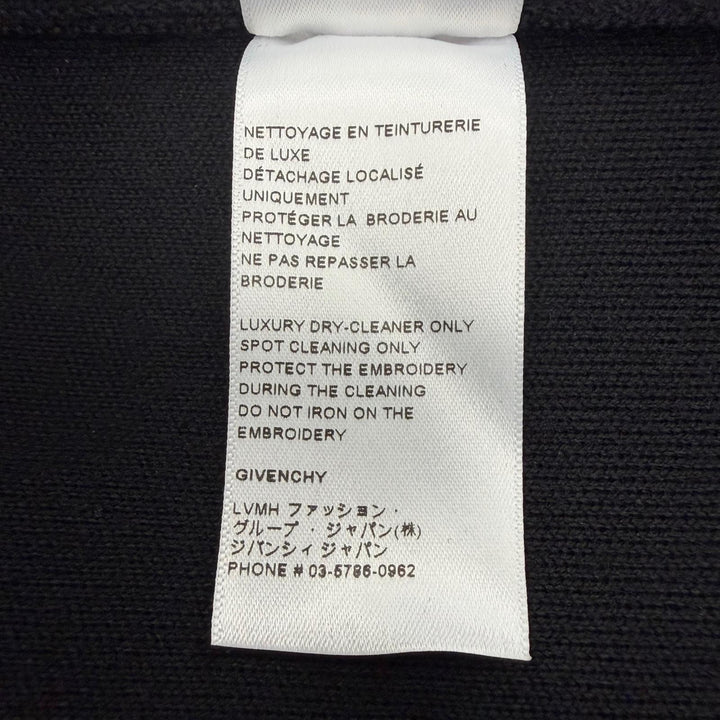 NETTOYAGE EN TEINTURERIE
DE LUXE
DÉTACHAGE LOCALISÉ
UNIQUEMENT
PROTÉGER LA BRODERIE AU
NETTOYAGE
NE PAS REPASSER LA
BRODERIE
LUXURY DRY-CLEANER ONLY
SPOT CLEANING ONLY
PROTECT THE EMBROIDERY
DURING THE CLEANING
DO NOT IRON ON THE
EMBROIDERY
GIVENCHY
LVMH ファッション・
グループ・ジャパン(株)
ジバンシィ ジャパン
PHONE # 03-5786-0962